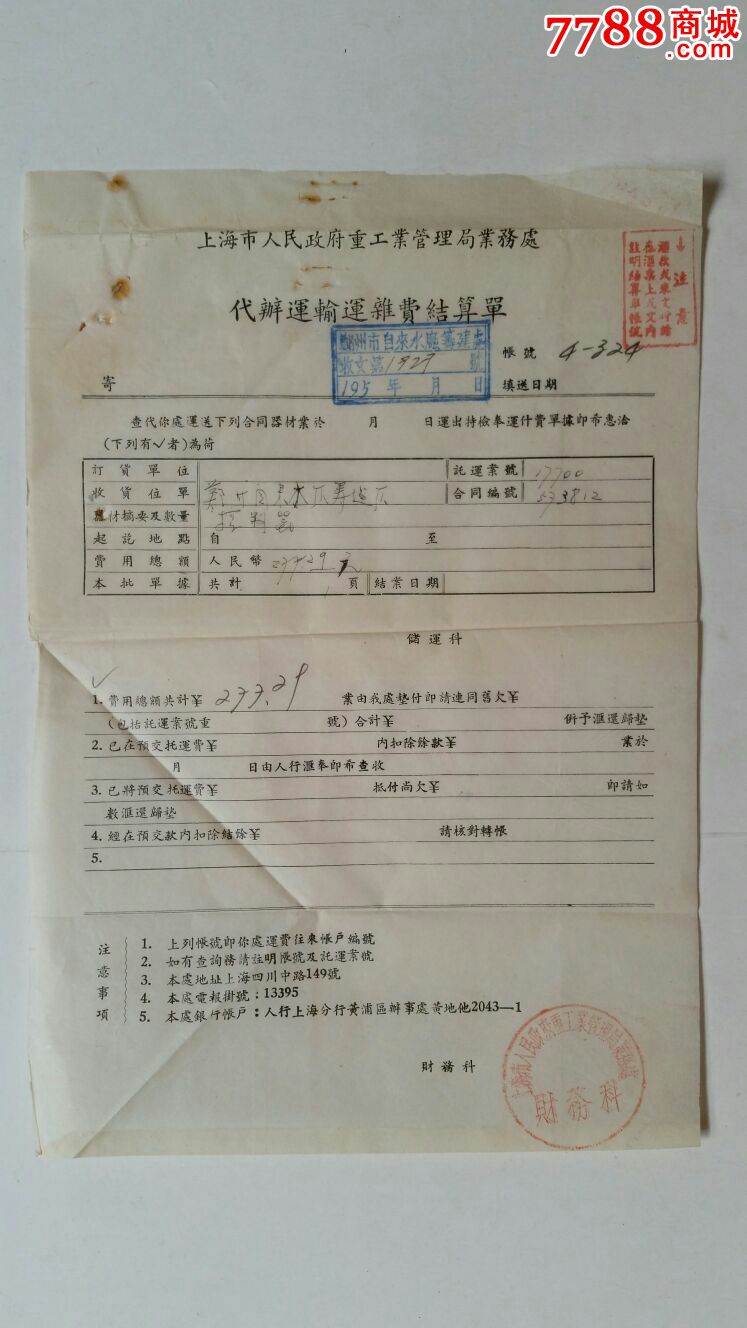 7788商城
.com
上海市人民政府重工業管理局業務處
代辦運輸運雜費結算單
注意
鄭州市自來水廠籌建處
收文第1929號
195 年 月 日
帳號 4-324
寄
填送日期
查代你處運送下列合同器材業於 月 日運出持檢奉運什費單據即布惠洽
(下列有√者)為荷
訂貨單位
託運業號 17700
收貨位單
合同編號 533812
器材摘要及數量
起訖地點 自 至
費用總額 人民幣 元
本批單據 共計 頁 結業日期
儲運科
√
1. 費用總額共計¥ 233.29 業由我處墊付即請連同舊欠¥
(包括託運業號重 號)合計¥ 併予滙還歸墊
2. 已在預交托運費¥ 內扣除餘款¥ 業於
月 日由人行滙奉即希查收
3. 已將預交托運費¥ 抵付尚欠¥ 即請如
數滙還歸墊
4. 經在預交款內扣除結餘¥ 請核對轉帳
5.
注意事項
1. 上列帳號即你處運費往來帳戶編號
2. 如有查詢務請註明帳號及託運業號
3. 本處地址上海四川中路149號
4. 本處電報掛號:13395
5. 本處銀行帳戶:人行上海分行黃浦區辦事處黃地他2043—1
財務科
財務科